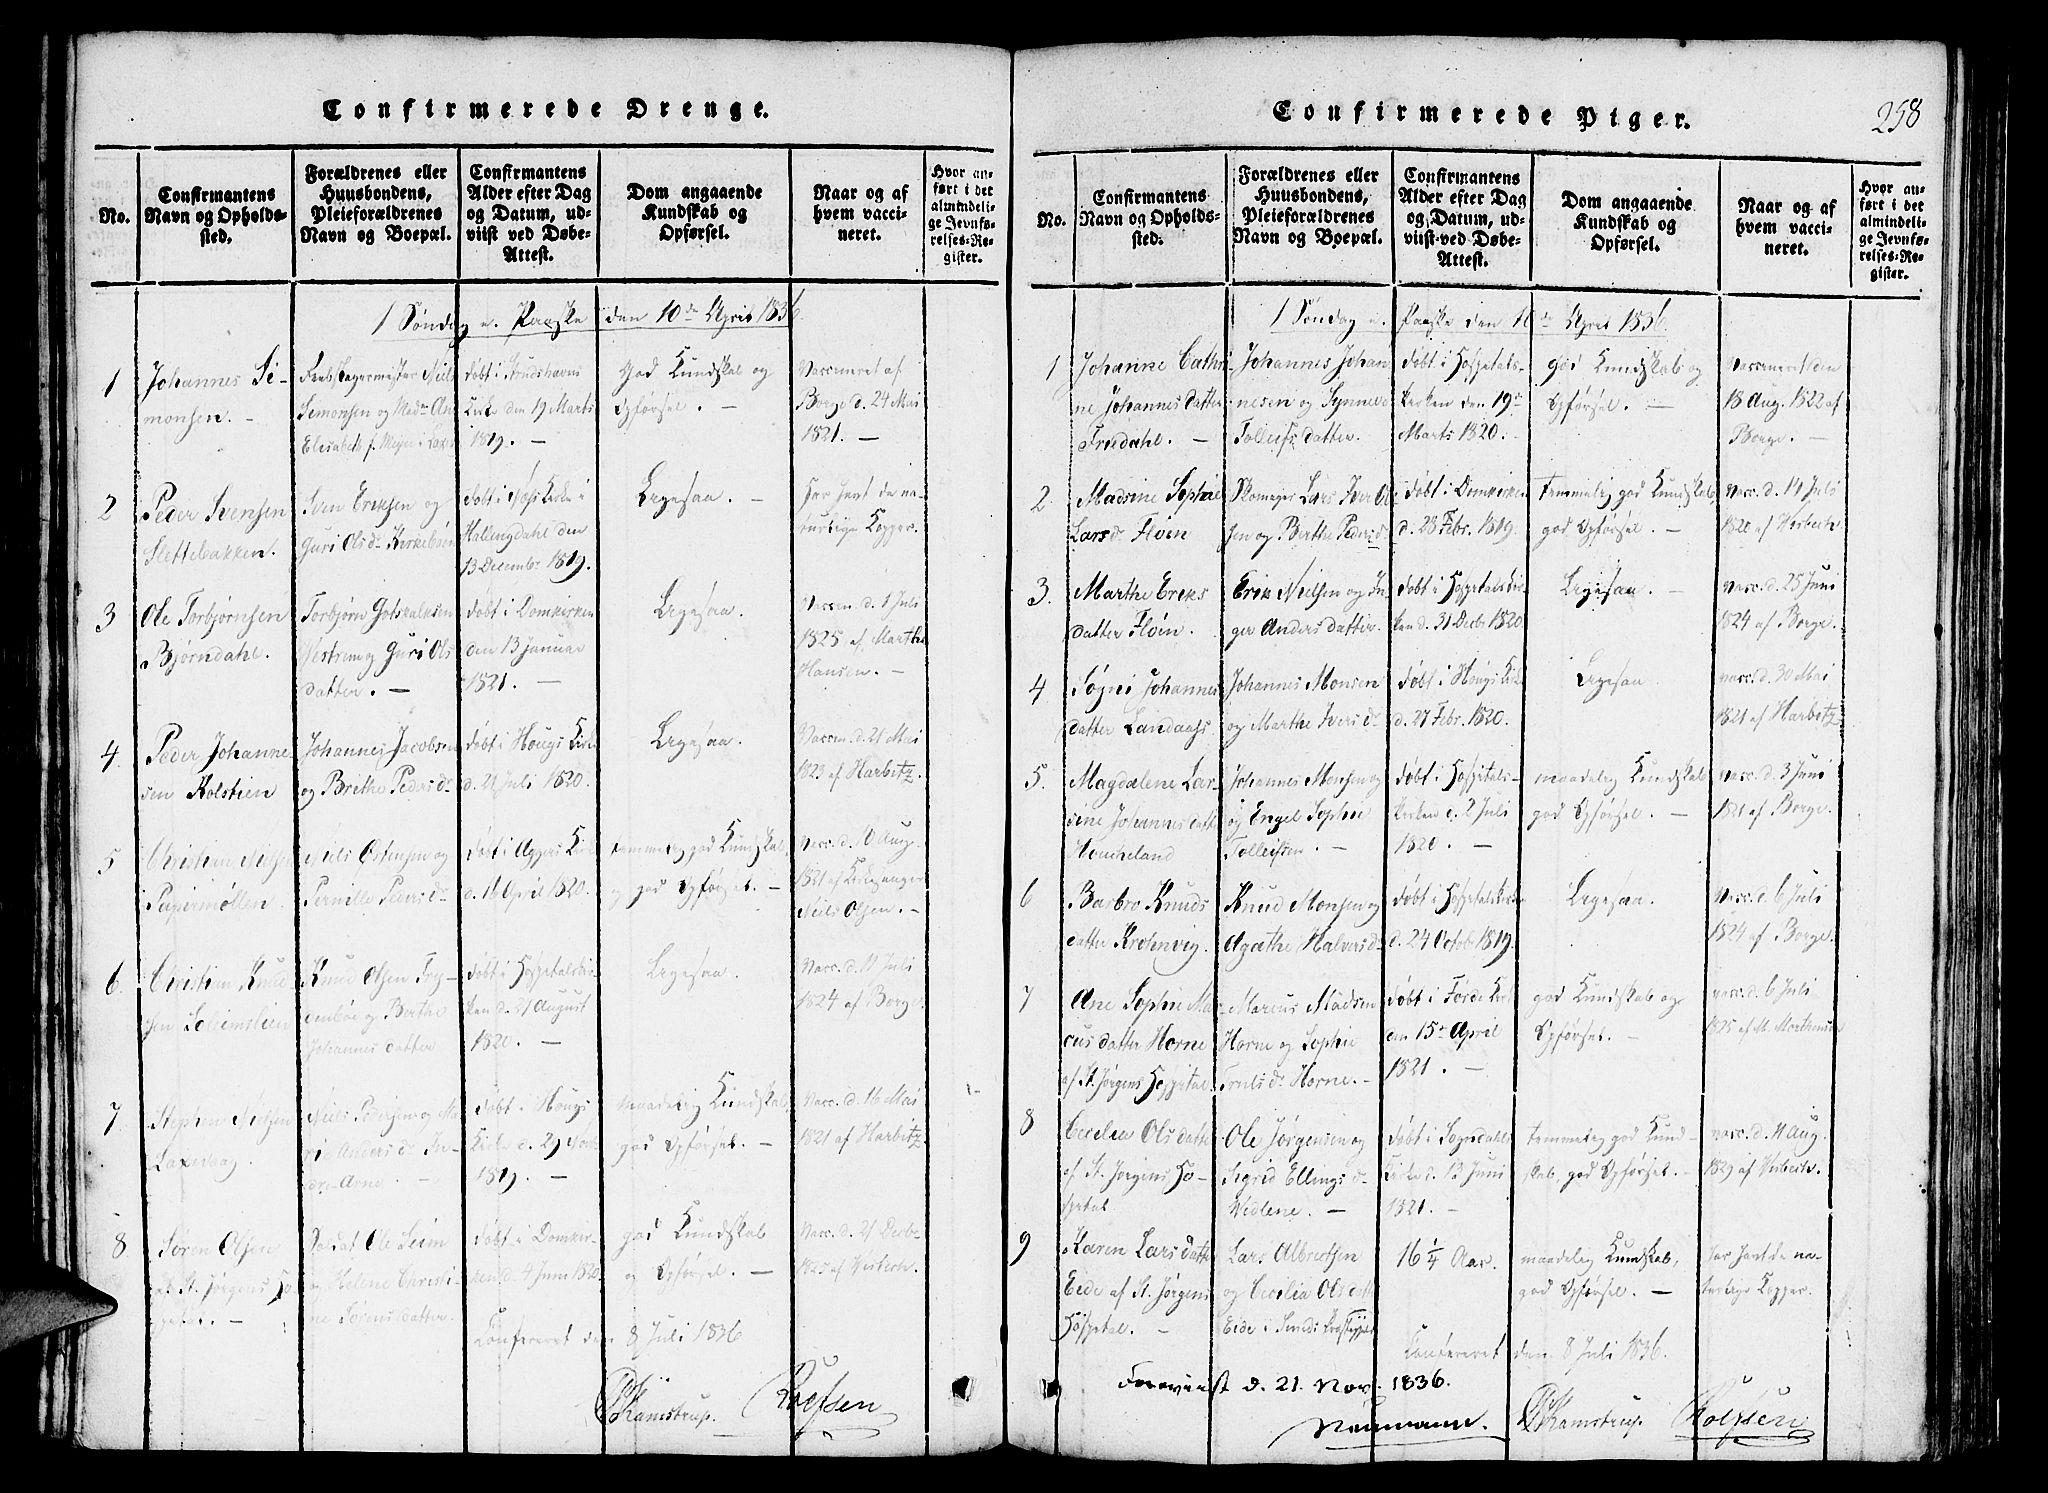 Confirmerede Drenge.
No.
Confirmantens Navn og Opholdssted.
Forældrenes eller Huusbondens, Pleieforældrenes Navn og Boepæl.
Confirmantens Alder efter Dag og Datum, udviist ved Døbe-Attest.
Dom angaaende Kundskab og Opførsel.
Naar og af hvem vaccineret.
Hvor anført i det almindelige Jevnførelses-Register.
1 Søndag e. Paaske den 10de April 1836.
1
Johannes Simonsen. -
Niels Semonsen og Mad. Elisabeth f. Meyer i
døbt i Kirke den 19 Marts 1819. -
God Kundskab og Opførsel. -
Vaccineret af Borge d. 24 Mai 1821. -
2
Peder Svensen Slettebakken.
Sven Eriksen og Guri Olsdr Kirkebøen
døbt i Næss Kirke i Hallingdahl den 13 Decembr 1819.
Ligesaa. -
Har havt de naturlige Kopper.
3
Ole Torbjørnsen Bjørndahl.
Torbjørn Gotskalksen og Guri Olsdatter. -
døbt i Domkirken den 13 Januar 1821. -
Ligesaa.
Vaccin. d. 1 Juli 1825 af Marthe Hansen. -
4
Peder Johannesen Kolstien
Johannes Jacobsen og Brithe Pedersdr
døbt i Hougs Kirke d. 21 Juli 1820.
Ligesaa.
Vaccin. d. 21 Mai 1823 af Harbitz.
5
Christian Nielsen Papirmøllen.
Niels Østensen og Pernille Pedersdr
døbt i Aggers Kirke d. 16 April 1820.
temmelig god Kundskab, og god Opførsel. -
Vacc. d. 10 Aug. 1821 af Kirkesanger Niels Olsen. -
6.
Christian Knudsen Solhemslien
Knud Olsen og Berthe Johannesdatter
døbt i Hospitalskirken d. 21 August 1820. -
Ligesaa.
Vacc. d. 11 Juli 1824 af Borge.
7.
Stephen Nielsen Laxevaag.
Niels Pedersen og Marie Andersdr Indre Arne. -
døbt i Hougs Kirke d. 29 1819. -
maadelig Kundskab, god Opførsel. -
Vacc. d. 16 Mai 1821 af Harbitz
8.
Søren Olsen af St. Jørgens Hospital. -
Soldat Ole Seim og Helene Christine Sørensdatter.
døbt i Domkirken d. 4 Juni 1820.
god Kundskab og Opførsel. -
Vacc. d. 21 Decbr 1825 af Wisbech.
Confereret den 8 Juli 1836
Kamstrup. Rolfsen
Confirmerede Piger.
258
No.
Confirmantens Navn og Opholdssted.
Forældrenes eller Huusbondens, Pleieforældrenes Navn og Boepæl.
Confirmantens Alder efter Dag og Datum, udviist ved Døbe-Attest.
Dom angaaende Kundskab og Opførsel.
Naar og af hvem vaccineret.
Hvor anført i det almindelige Jevnførelses-Register.
1 Søndag e. Paaske den 10de April 1836.
1
Johanne Cathrine Johannesdatter Fredahl. -
Johannes Johannesen og Synneve Tolleifsdatter.
døbt i Hospitalskirken den 19de Marts 1820. -
god Kundskab og Opførsel. -
Vaccineret den 18 Aug. 1822 af Borge. -
2.
Madsine Sophie Larsdr Fløen
Skomager Lars Iver Olsen og Berthe Pedersdr
døbt i Domkirken d. 28 Febr. 1819.
temmelig god Kundskab, god Opførsel. -
Vacc. d. 14 Juli 1820 af Wisbech.
3.
Marthe Eriksdatter Fløen.
Erik Nielsen og Inger Andersdatter.
døbt i Hospitalskirken d. 31 Decbr 1820
Ligesaa. -
Vacc. d. 25 Juni 1824 af Borge.
4
Søgni Johannesdatter Landaas
Johannes Monsen og Marthe Iversdr
døbt i Hougs Kirke d. 27 Febr. 1820.
Ligesaa.
Vacc. d. 30 Mai 1821 af Harbitz
5.
Magdalene Larsine Johannesdatter Houkeland
Johannes Monsen og Engel Sophie Tolleifsen. -
døbt i Hospitalskirken d. 2 Juli 1820. -
maadelig Kundskab god Opførsel. -
Vacc. d. 3 Juni 1821 af Borge.
6
Barbro Knudsdatter Krohnvig.
Knud Monsen og Agathe Halversdr
døbt i Hospitalskirken d. 24 Octob. 1819.
Ligesaa.
Vacc. d. 6 Juli 1824 af Borge.
7
Ane Sophie Marcusdatter Horne af St. Jørgens Hospital.
Marcus Madsen Horne og Sophie Trulsdr Horne. -
døbt i Førde Kirke den 15de April 1821. -
god Kundskab og Opførsel. -
Vacc. d. 6 Juli 1825 af M. Mortensen
8
Cecilia Olsdatter af St. Jørgens Hospital
Ole Jørgensen og Sigrid Ellingsdr Widlene. -
døbt i Sogndals Kirke d. 13 Juni 1821. -
temmelig god Kundskab, god Opførsel. -
Vacc. d. 11 Aug. 1829 af Wisbech.
9
Karen Larsdatter Eide af St. Jørgens Hospital. -
Lars Albrectsen og Cecilia Olsdatter Eide i Sunds Præstegjeld
16 1/4 Aar.
maadelig Kundskab, god Opførsel. -
har havt de naturlige Kopper.
Confereret den 8 Juli 1836.
Foreviist d. 21. Nov. 1836.
Neumann. Kamstrup Rolfsen